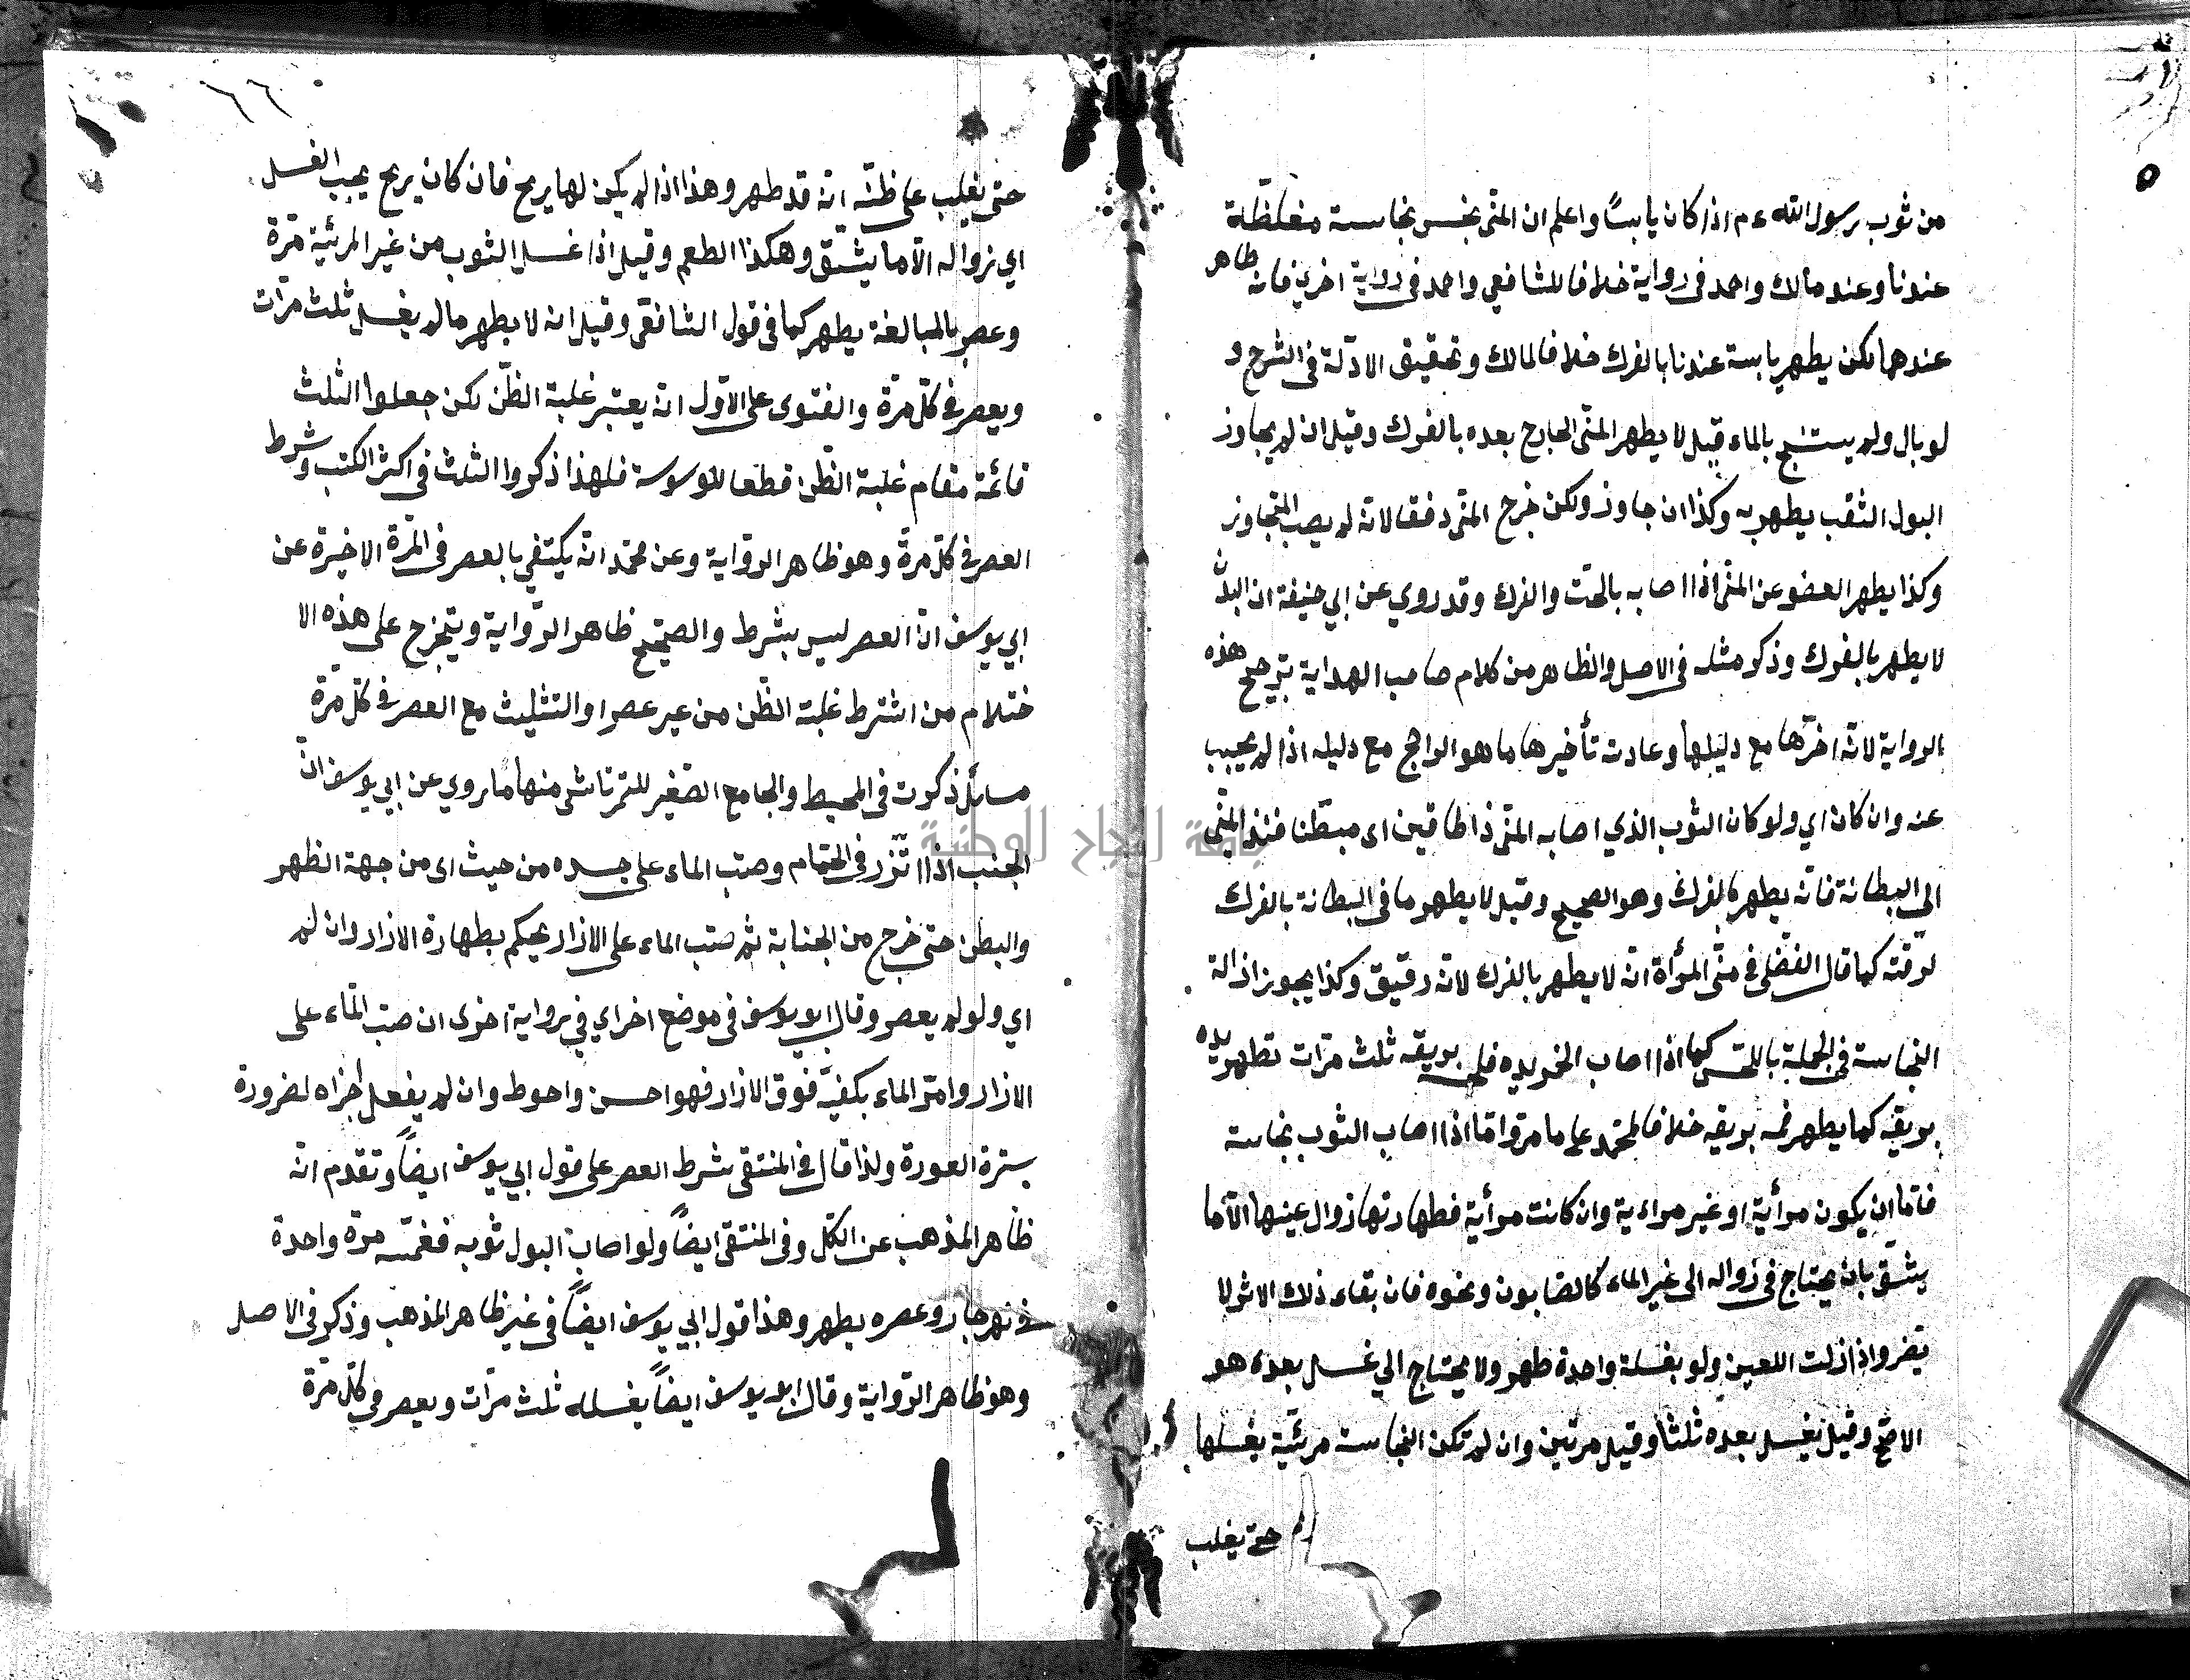 من ثوب رسول الله ءم اذا كان يابسًا واعلم ان المنّى نجس نجاسة مغلظّة
عندنا وعند مالك واحمد فى رواية خلافا للشافعي واحمد فى رواية اخري فانه طاهر
عندهما لكن يطهر يابسة عندنا بالفرك خلافا لمالك وتحقيق الادّلة فى الشرح و
لو بال ولم يستنج بالماء قيل لا يطهر المنّى الخارج بعده بالفرك وقيل ان لم يجاوز
البول الثقب يطهر به وكذا ان جاوز ولكن خرج المنّى دفقا لانّه لم يصب المتجاوز
وكذا يطهر العضو عن المنّى اذا اصابه بالحتّ والفرك وقد روي عن ابي حنيفة ان البدن
لا يطهر بالفرك وذكر مثله فى الاصل والظاهر من كلام صاحب الهداية ترجيح هذه
الرواية لانّه اخرّها مع دليلها وعادته تأخير ها ما هو الراجح مع دليله اذا لم يجيب
عنه وان كان اي ولو كان الثوب الذي اصابه المنّى ذا طاقين اى مبطّنا فنفذ المنّى
الى البطانة فانّه يطهر بالفرك وهو الصحيح وقيل لا يطهر ما فى البطانة بالفرك
لرقّته كما قال الفضلى فى منّى المرأة انّه لا يطهر بالفرك لانّه رقيق وكذا يجوز ازالة
النجاسة فى الجملة باللحس كما اذا اصاب الخمر يده فلحس بريقه ثلث مرّات تطهر يده
بريقه كما يطهر فمه بريقه خلافا لمحمّد على ما مرّ وامّا اذا اصاب الثوب نجاسة
فامّا ان يكون مرأية او غير مراءية وان كانت مرأية فطهارتها زوال عينها الاّ ما
يشّق بان يحتاج فى زواله الى غير الماء كالصابون ونحوه فان بقاء ذلك الاثر لا
يضر واذا زلت العين ولو بغسلة واحدة طهر ولا يحتاج الي غسل بعده هو
الاصّح وقيل يغسل بعده ثلثا وقيل مرتين وان لم تكن النجاسة مرئيّة يغسلها
حتى يغلب
٦٦
حتى يغلب على ظنّه انّه قد طهر وهذا اذا لم يكن لها ريح فان كان ريح يجب الغسل
اي زواله الاّ ما يشّق وهكذا الطعم وقيل اذا غسل الثوب من غير المرئية مرّة
وعصر بالمبالغة يطهر كما فى قول الشافعّى وقيل انه لا يطهر ما لم يغسل ثلث مرّات
ويعصر فى كلّ مرّة والفتوى على الاوّل انّه يعتبر غلبة الظنّ لكن جعلوا الثلث
قائمة مقام غلبة الظّن قطعا للوسوسة فلهذا ذكروا الثلث فى اكثر الكتب وشرط
العصر فى كلّ مرّة وهو ظاهر الرواية وعن محمّد انّه يكتفي بالعصر فى المّرة الاخيرة عن
ابي يوسف انّ العصر ليس بشرط والصحّيح ظاهر الرّواية ويتخرّج على هذه الا
ختلام من اشترط غلبة الظّن من غير عصر او التثليث مع العصر فى كلّ مرّة
مسائل ذكرت فى المحيط والجامع الصّغير للتمرتاشى منها ما روي عن ابي يوسف انّ
الجنب اذا اتّزر فى الحمّام وصب الماء على جسده من حيث اى من جهة الظهر
والبطن حتى خرج من الجنابة ثم صب الماء على الازار يحكم بطهارة الازار وان لم
اي ولو لم يعصر وقال ابو يوسف فى موضع اخر اي في رواية اخرى ان صب الماء على
الازار وامّر الماء بكفيّه فوق الازار فهو احسن واحوط وان لم يفعل اجزاه لضرورة
سترة العورة ولذا قال فى المنتقى شرط العصر على قول ابي يوسف ايضاً وتقدم انه
ظاهر المذهب عن الكلّ وفى المنتقى ايضاً ولو اصاب البول ثوبه فغمسّه مرة واحدة
فى نهر جار وعصره يطهر وهذا قول ابي يوسف ايضاً فى غير ظاهر المذهب وذكر فى الاصل
وهو ظاهر الرّواية وقال ابو يوسف ايضاً يغسله ثلث مرّات ويعصر في كلّ مرّة
جامعة النجاح الوطنية